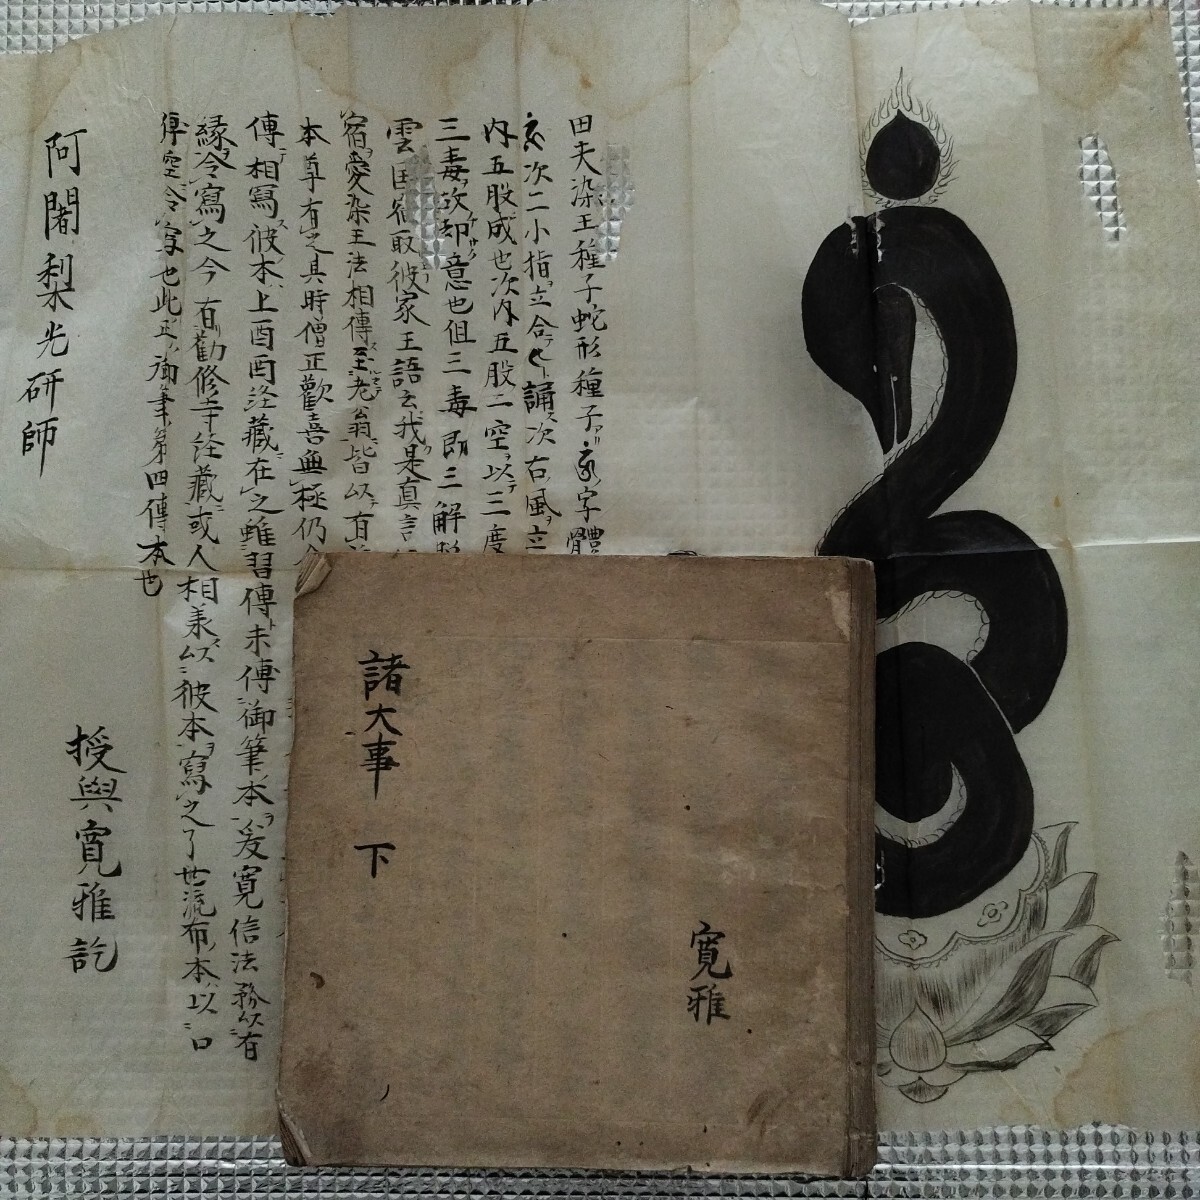 田夫染王種子蛇形種子
字體
次二小指立合誦次右風立
内五股成也次内五股二空以三度
三毒故却意也但三毒即三解
雲国宿取彼家主語云我是真言
宿愛染王法相傳至老翁皆以有
本尊有之具時僧正歡喜無極仍
傳相寫彼本上酉酉経藏在之雖習傳未傳御筆本爰寛信法務以有
縁令寫之今有勸修寺経藏或人相承以彼本寫之了世流布本以口
傳空令寫也此正御筆第四傳本也
阿闍梨光研師
授與寛雅訖
諸大事 下
寛雅